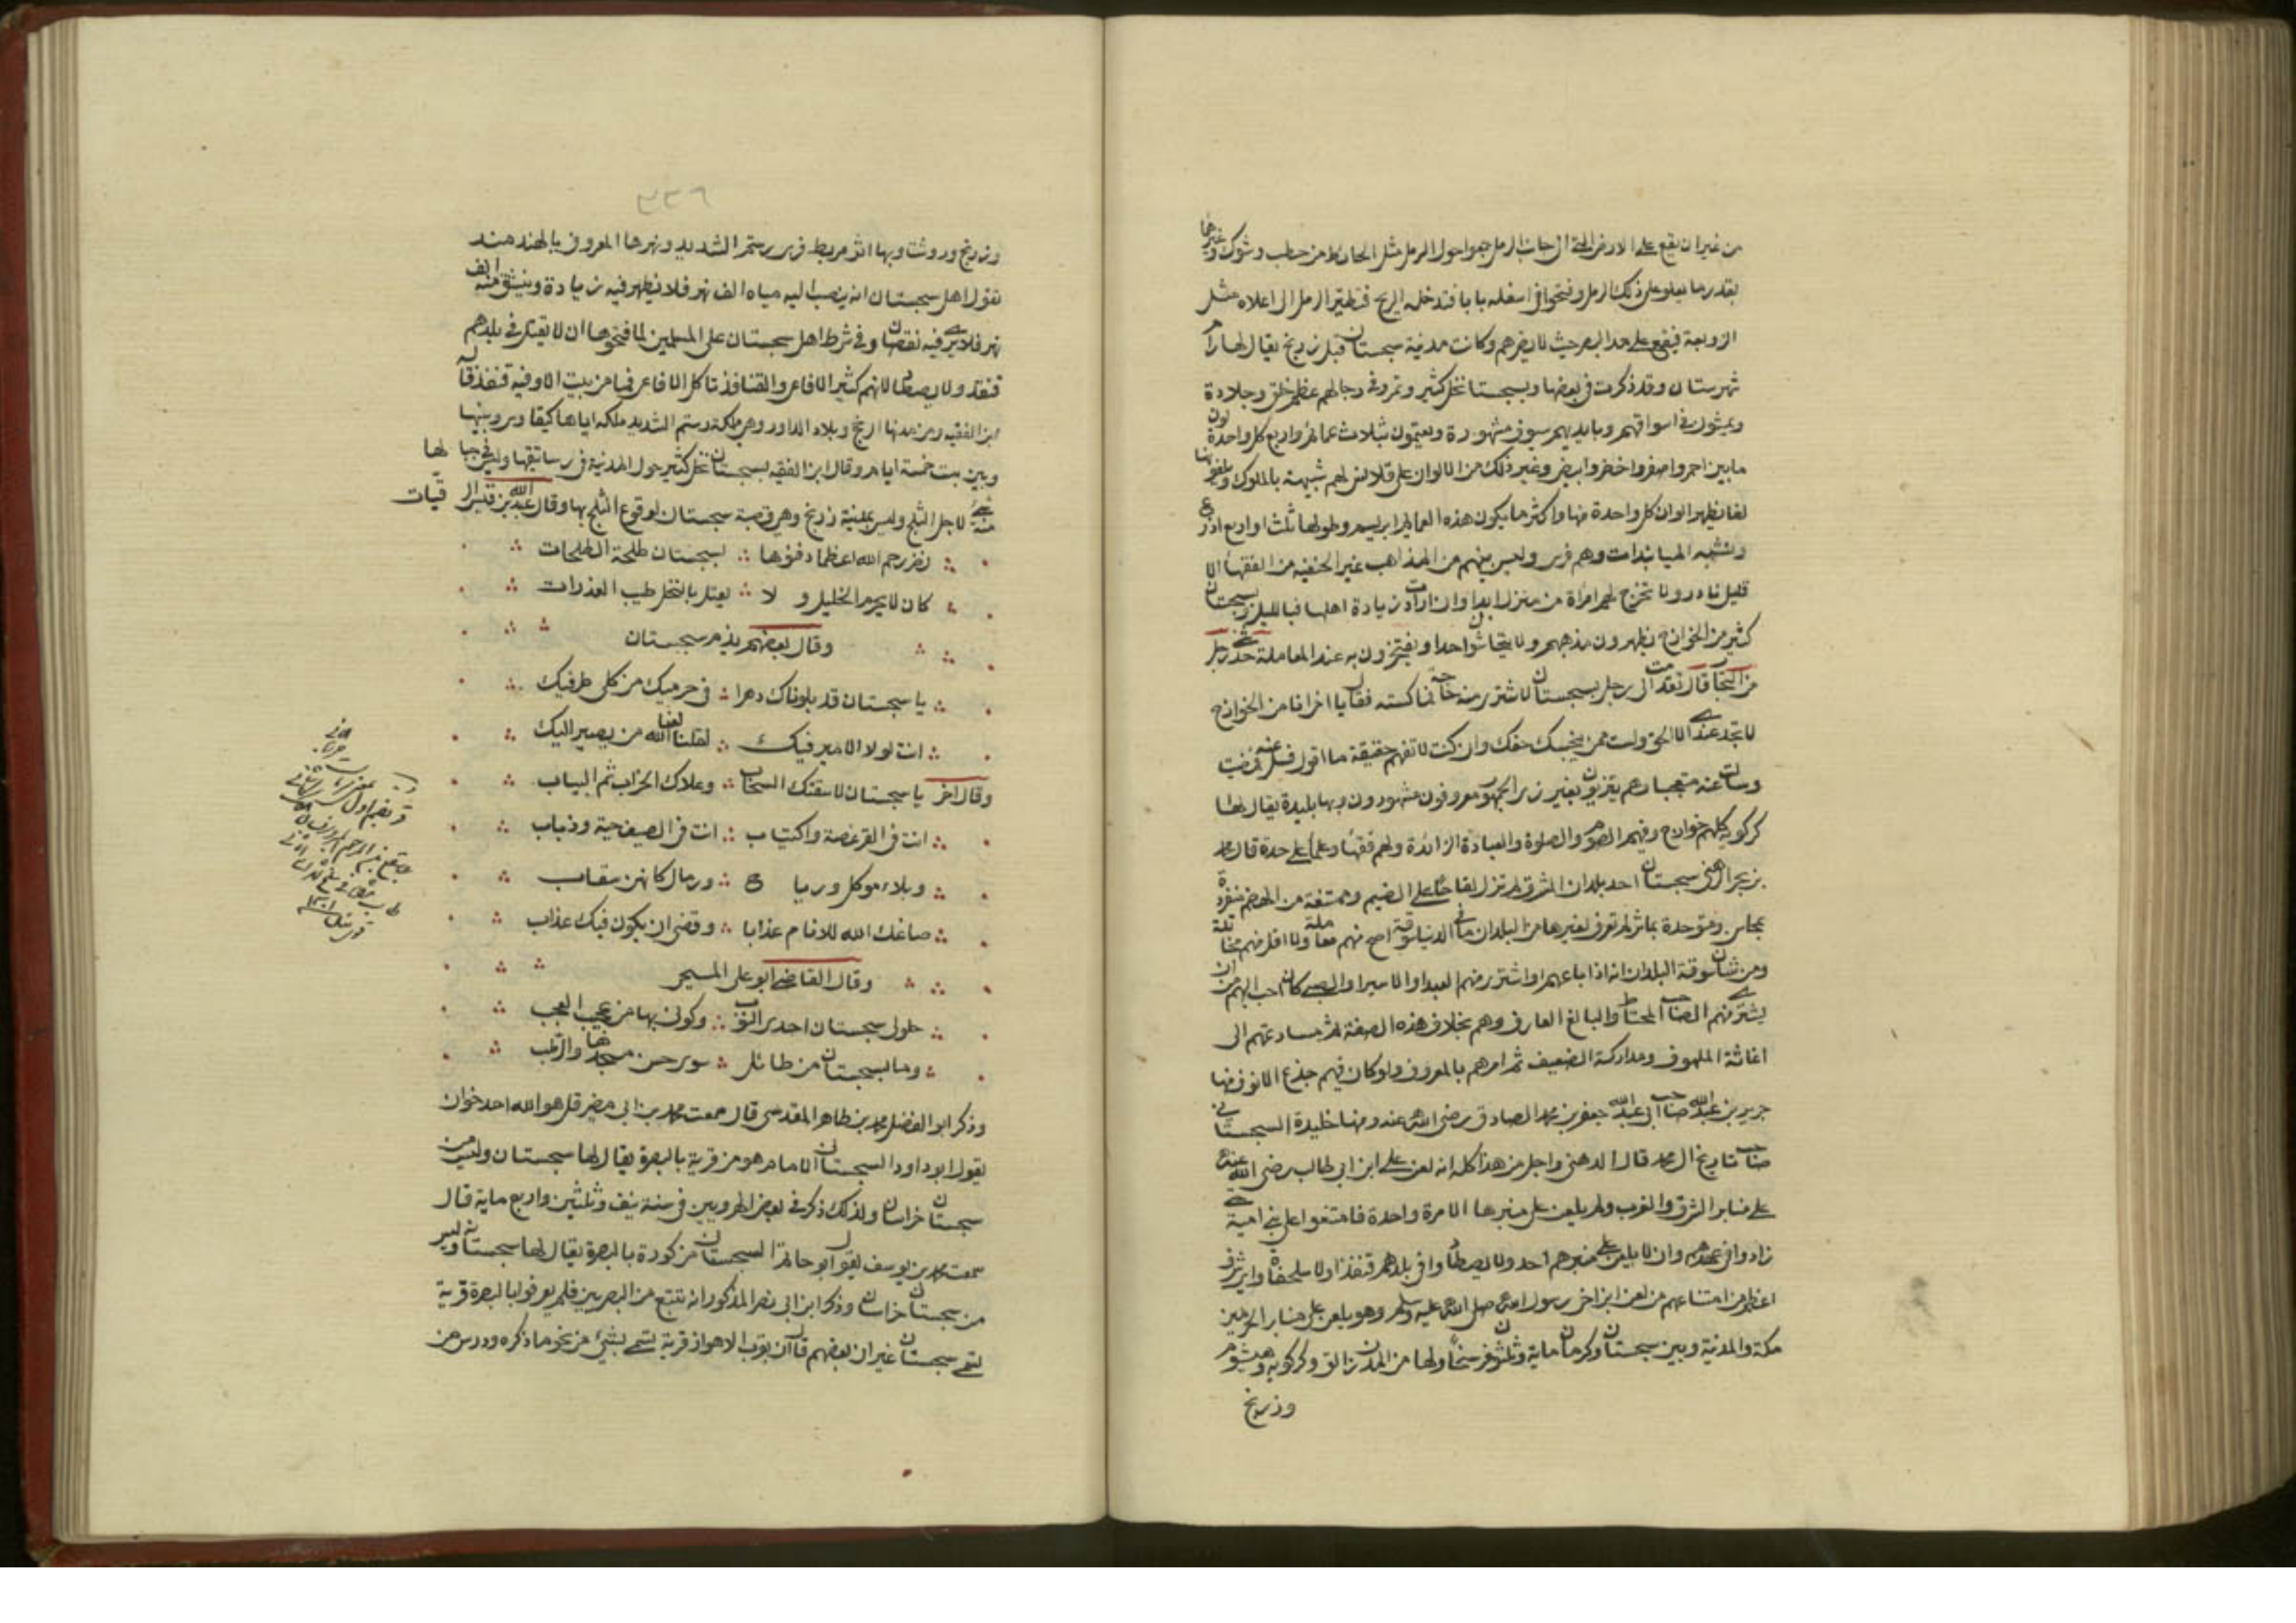 من غير ان يقع على الارض التى الى جانب الرمل جمعوا حول الرمل مثل الحائط من حطب وشوك وغيرهما
بقدر ما يعلو على ذلك الرمل وفتحوا فى اسفله بابا فتدخله الريح فتطير الرمل الى اعلاه مثل
الزوبعة فيقع على مد البصر حيث لا يضرهم وكانت مدينة سجستان قبل زرنج يقال لها رام
شهرستان وقد ذكرت فى بعضها وبسجستان نخل كثير وتمر وفى رجالهم عظم خلق وجلادة
ويمشون فى اسواقهم وبايديهم سيوف مشهورة ويعتمون بثلاث عمائم واربع كل واحدة لون
ما بين احمر واصفر واخضر وابيض وغير ذلك من الالوان على قلانس لهم شبيهة بالملوك ويلفونها
لفا يظهر الوان كل واحدة منها واكثر ما يكون هذه العمائم ابريسم وطولها ثلث او اربع اذرع
وتشبه الميانبدات وهم فرس وليس بينهم من المذاهب غير الحنفية من الفقهاء الا
قليل نادر ولا تخرج لهم امرأة من منزل ابدا وان ارادت زيادة اهلها فبالليل وبسجستان
كثير من الخوارج يظهرون مذهبهم ولا يتحاشون احدا ويفتخرون به عند المعاملة حدثنى رجل
من التجار قال تقدمت الى رجل بسجستان لاشترى منه حاجة فماكسته فقال يا اخى انا من الخوارج
لا تجد عندى الا الحق ولست ممن يبخسك حقك وان كنت لا تفهم حقيقة ما اقول فسل عنه فمضيت
وسألت عنه متعجبا وهم يتزيون بغير زى الجمهور معروفون مشهورون وبها بليدة يقال لها
كركويه كلهم خوارج وفيهم الصوم والصلوة والعبادة الزائدة ولهم فقهاء وعلماء على حدة قال محمد
بن بحر الرهنى سجستان احد بلدان المشرق لم تزل لقاحا على الضيم وممتنعة من الهضم منفردة
بمحاسن ومتوحدة بماثر لم تعرف لغيرها من البلدان ما فى الدنيا سوقة اصح منهم معاملة ولا اقل منهم مخاتلة
ومن شان سوقة البلدان انه اذا باعهم او اشترى منهم العبد او الاسير او الصبى كان احب اليهم من ان
يشترى منهم الصاحب المحتاط والبالغ العارف وهم بخلاف هذه الصفة ثم مسارعتهم الى
اغاثة الملهوف ومداركة الضعيف ثم امرهم بالمعروف ولو كان فيهم جذع الانوف منها
جرير بن عبد الله صاحب ابى عبد الله جعفر بن محمد الصادق رضى الله عنه ومنها خليدة السجستانى
صاحب تاريخ ال محمد قال الدهنى واجل من هذا كله انه لعن على ابن ابى طالب رضى الله عنه
على منابر الشرق والغرب ولم يلعن على منبرها الا مرة واحدة فامتنعوا على بنى امية حتى
زادوا فى عهدهم وان لا يلعن على منبرهم احد ولا يصطادوا فى بلدهم قنفذا ولا سلحفاة واى شرف
اعظم من امتناعهم من لعن ابن اخى رسول الله صلى الله عليه وسلم وهو يلعن على منابر الحرمين
مكة والمدينة وبين سجستان وكرمان ماية وثلثون فرسخا ولها من المدن زالق وكركويه وهيشوم
وزرنج
٣٣٦
وزرنج وروشت وبها اثر مربط فرس رستم الشديد ونهرها المعروف بالهندمند
تقول اهل سجستان انه ينصب اليه مياه الف نهر فلا يظهر فيه زيادة وينشق منه الف
نهر فلا يرى فيه نقصان وفى شرط اهل سجستان على المسلمين لما فتحوها ان لا يقتل فى بلدهم
قنفذ ولا يصطاد لانهم كثير الافاعى والقنافذ تاكل الافاعى فما من بيت الا وفيه قنفذ قاله
ابن الفقيه ومن مدنها الرخج وبلاد الداور وهى مملكة رستم الشديد ملكه اياها كيقاوس وبينها
وبين بست خمسة ايام وقال ابن الفقيه بسجستان نخل كثير حول المدينة فى رساتيقها وليس فى جبالها
منه شئ لاجل الثلج وليس بمدينة زرنج وهى قصبة سجستان لوقوع الثلج بها وقال عبد الله بن قيس الرقيات
نضر رحم الله اعظما دفنوها بسجستان طلحة الطلحات
كان لا يحرم الخليل ولا يعتل بالنخل طيب العذرات
وقال بعضهم يذم سجستان
يا سجستان قد بلوناك دهرا فى حرميك من كلى طرفيك
انت لولا الامير فيك لقلنا لعن الله من يصير اليك
وقال اخر يا سجستان لا سقتك السحاب وعلاك الخراب ثم اليباب
انت فى القر غصة واكتياب انت فى الصيف حية وذباب
وبلاء موكل ورياح ورمال كانهن سقاب
صاغك الله للانام عذابا وقضى ان يكون فيك عذاب
وقال القاضى ابو على المسيحى
حلولى سجستان احدى النوب وكونى بها من عجيب العجب
وما بسجستان من طائل سوى حسن مسجدها والرطب
وذكر ابو الفضل محمد بن طاهر المقدسى قال سمعت محمد بن ابى مضر قل هو الله احد خوان
يقول ابو داود السجستانى الامام هو من قرية بالبصرة يقال لها سجستان وليس من
سجستان خراسان ولذلك ذكر فى بعض الهرويين فى سنة نيف وثلثين واربع ماية قال
سمعت محمد بن يوسف يقول ابو حاتم السجستانى من كورة بالبصرة يقال لها سجستانه وليس
من سجستان خراسان وذكر ابن ابى نصر المذكور انه تتبع من البصريين فلم يعرفوا بالبصرة قرية
تسمى سجستان غير ان بعضهم قال ان بقرب الاهواز قرية تسمى بشئ من نحو ما ذكره ودرس من